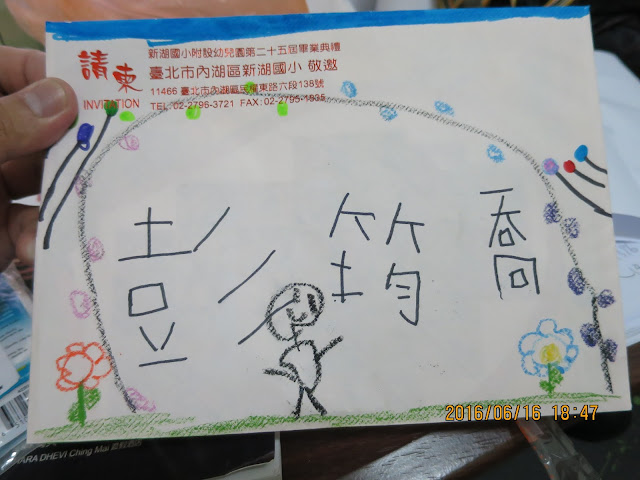 請柬
INVITATION
新湖國小附設幼兒園第二十五屆畢業典禮
臺北市內湖區新湖國小 敬邀
11466 臺北市內湖區民權東路六段138號
TEL: 02-2796-3721 FAX:
彭筠喬
2016/06/16 18:47
DHEVI Ching Mai